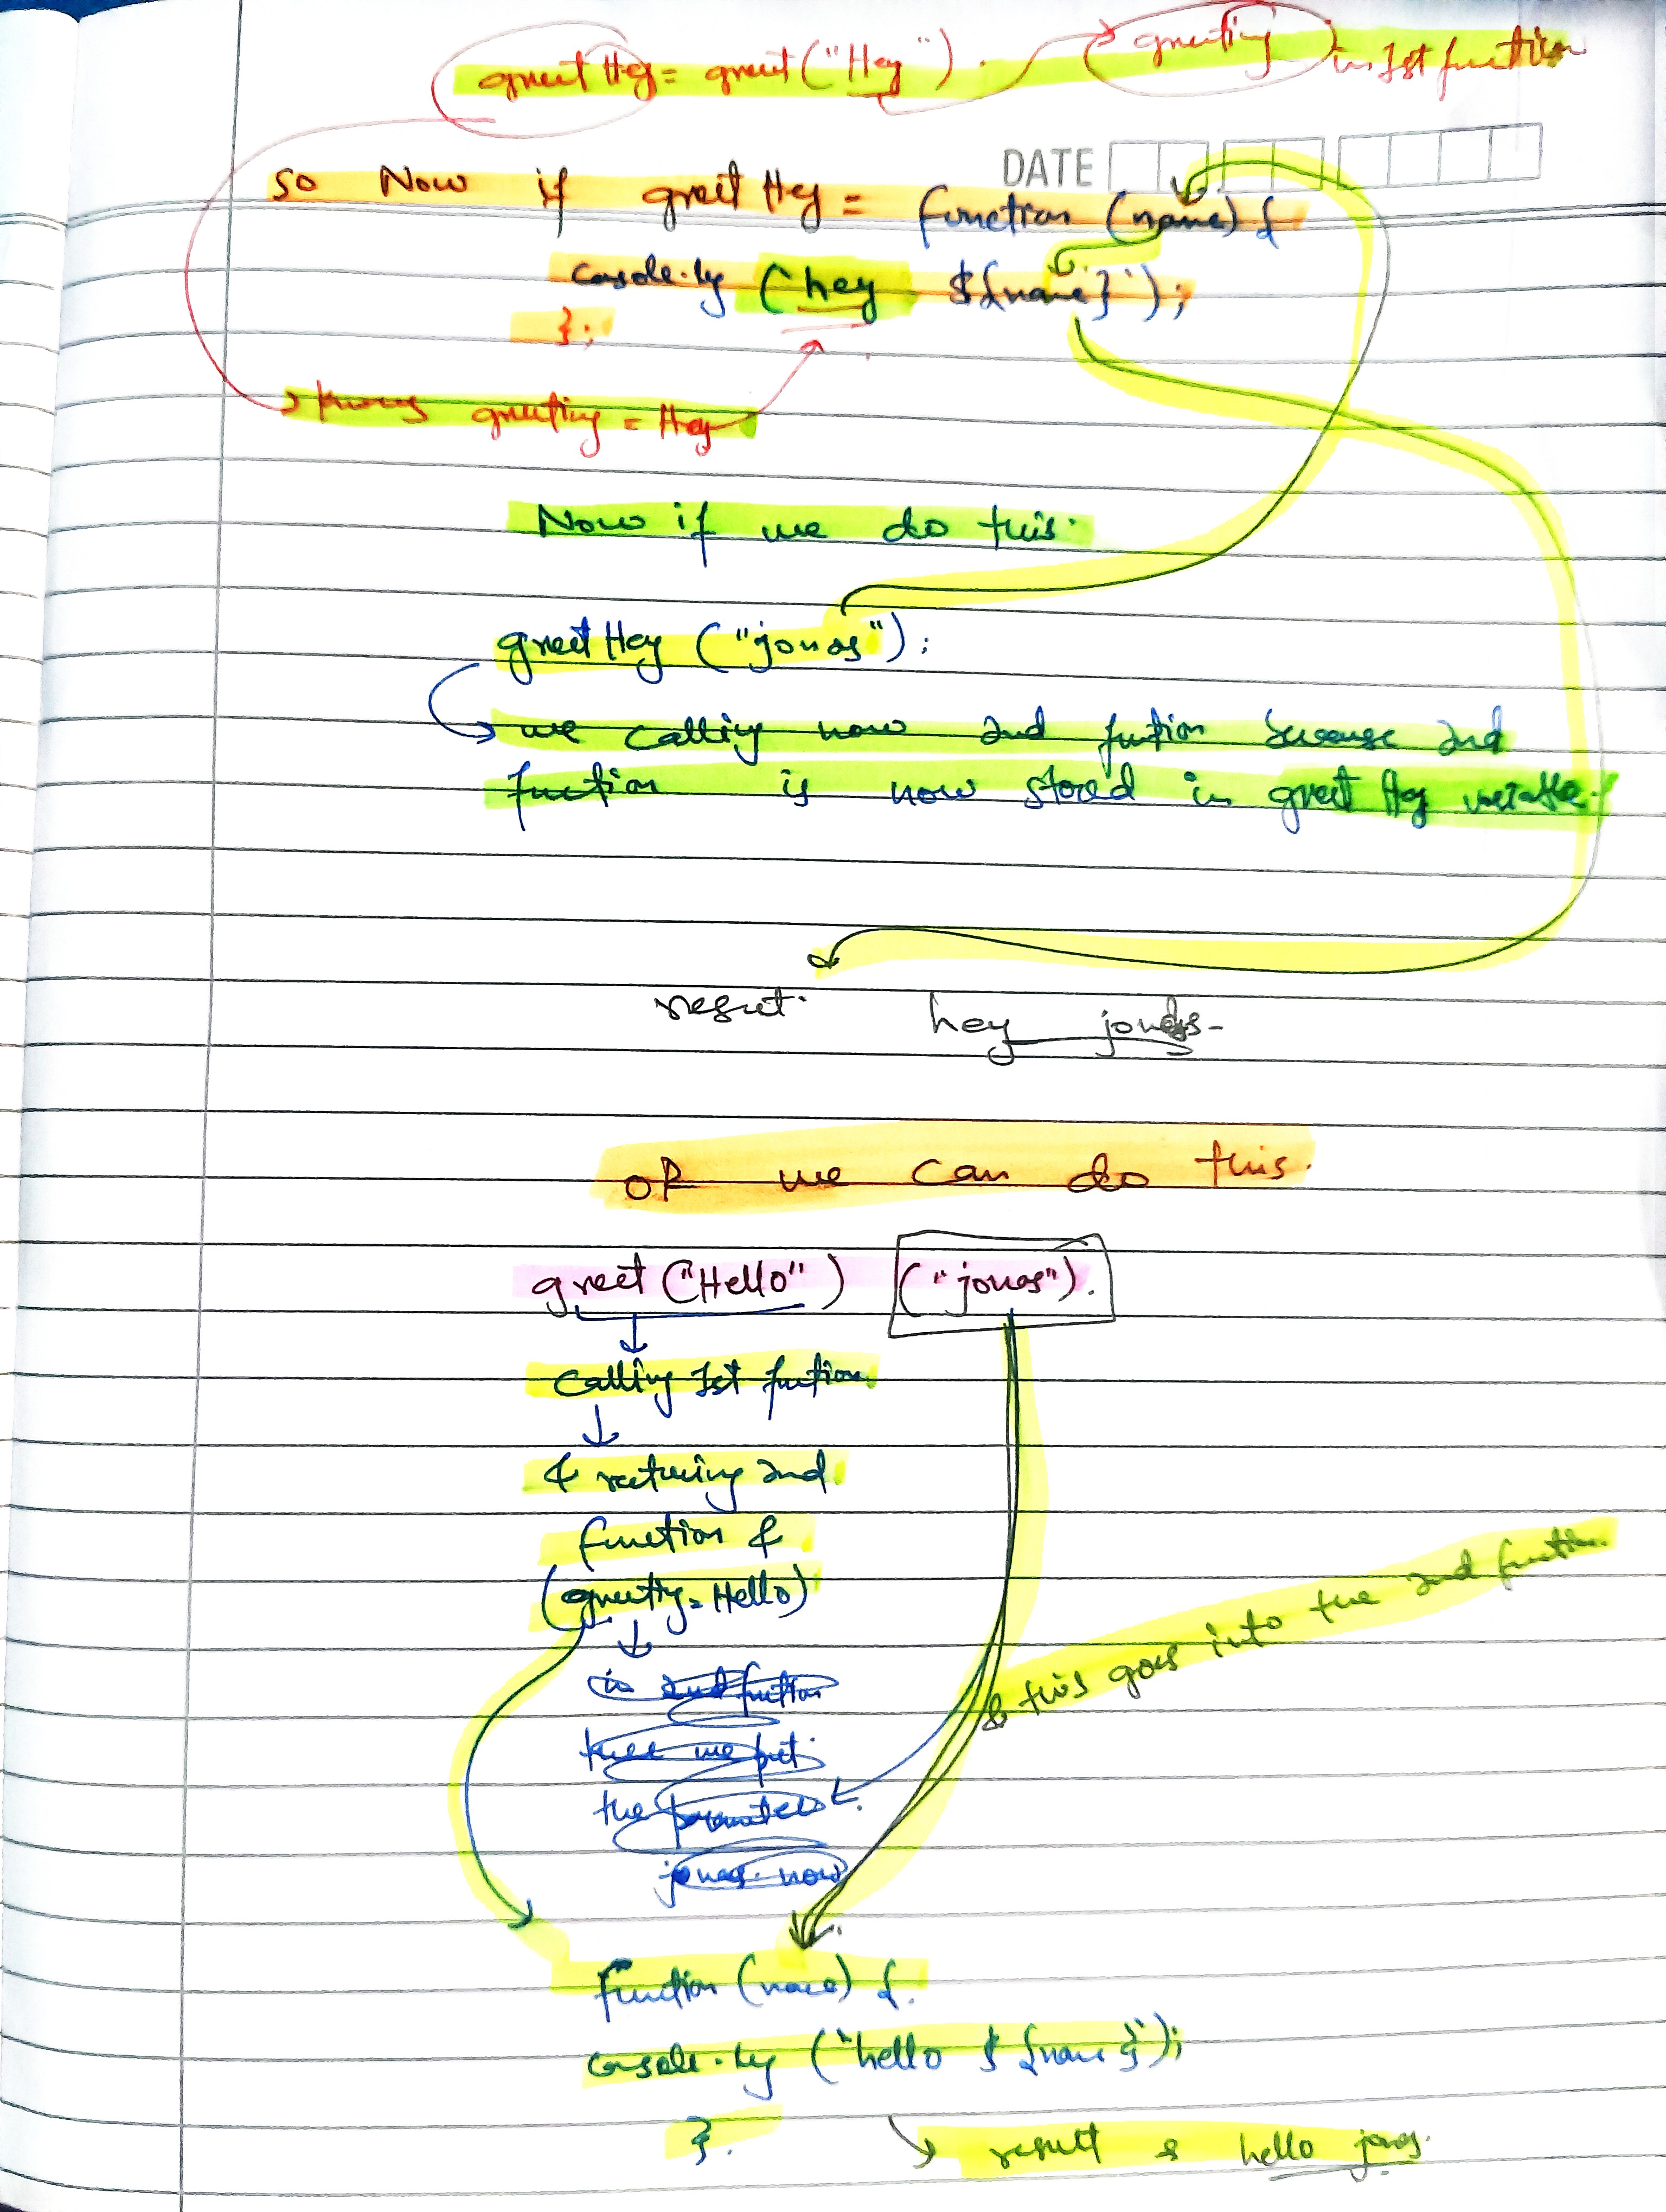 greet Hey = greet ("Hey"). greeting in 1st function
DATE
so Now if greet Hey = function (name) {
console.log (`hey ${name}`);
};
greeting = Hey
Now if we do this.
greet Hey ("jonas");
we calling now 2nd funtion because 2nd
function is now stored in greet Hey variable.
result. hey jonas
OR we can do this.
greet ("Hello") ("jonas").
calling 1st funtion.
& returing 2nd
function &
(greeting = Hello)
in 2nd funtion
we put
the parameter
jonas now
& this goes into the 2nd function.
function (name) {.
console.log (`hello ${name}`);
}.
result is hello jonas.